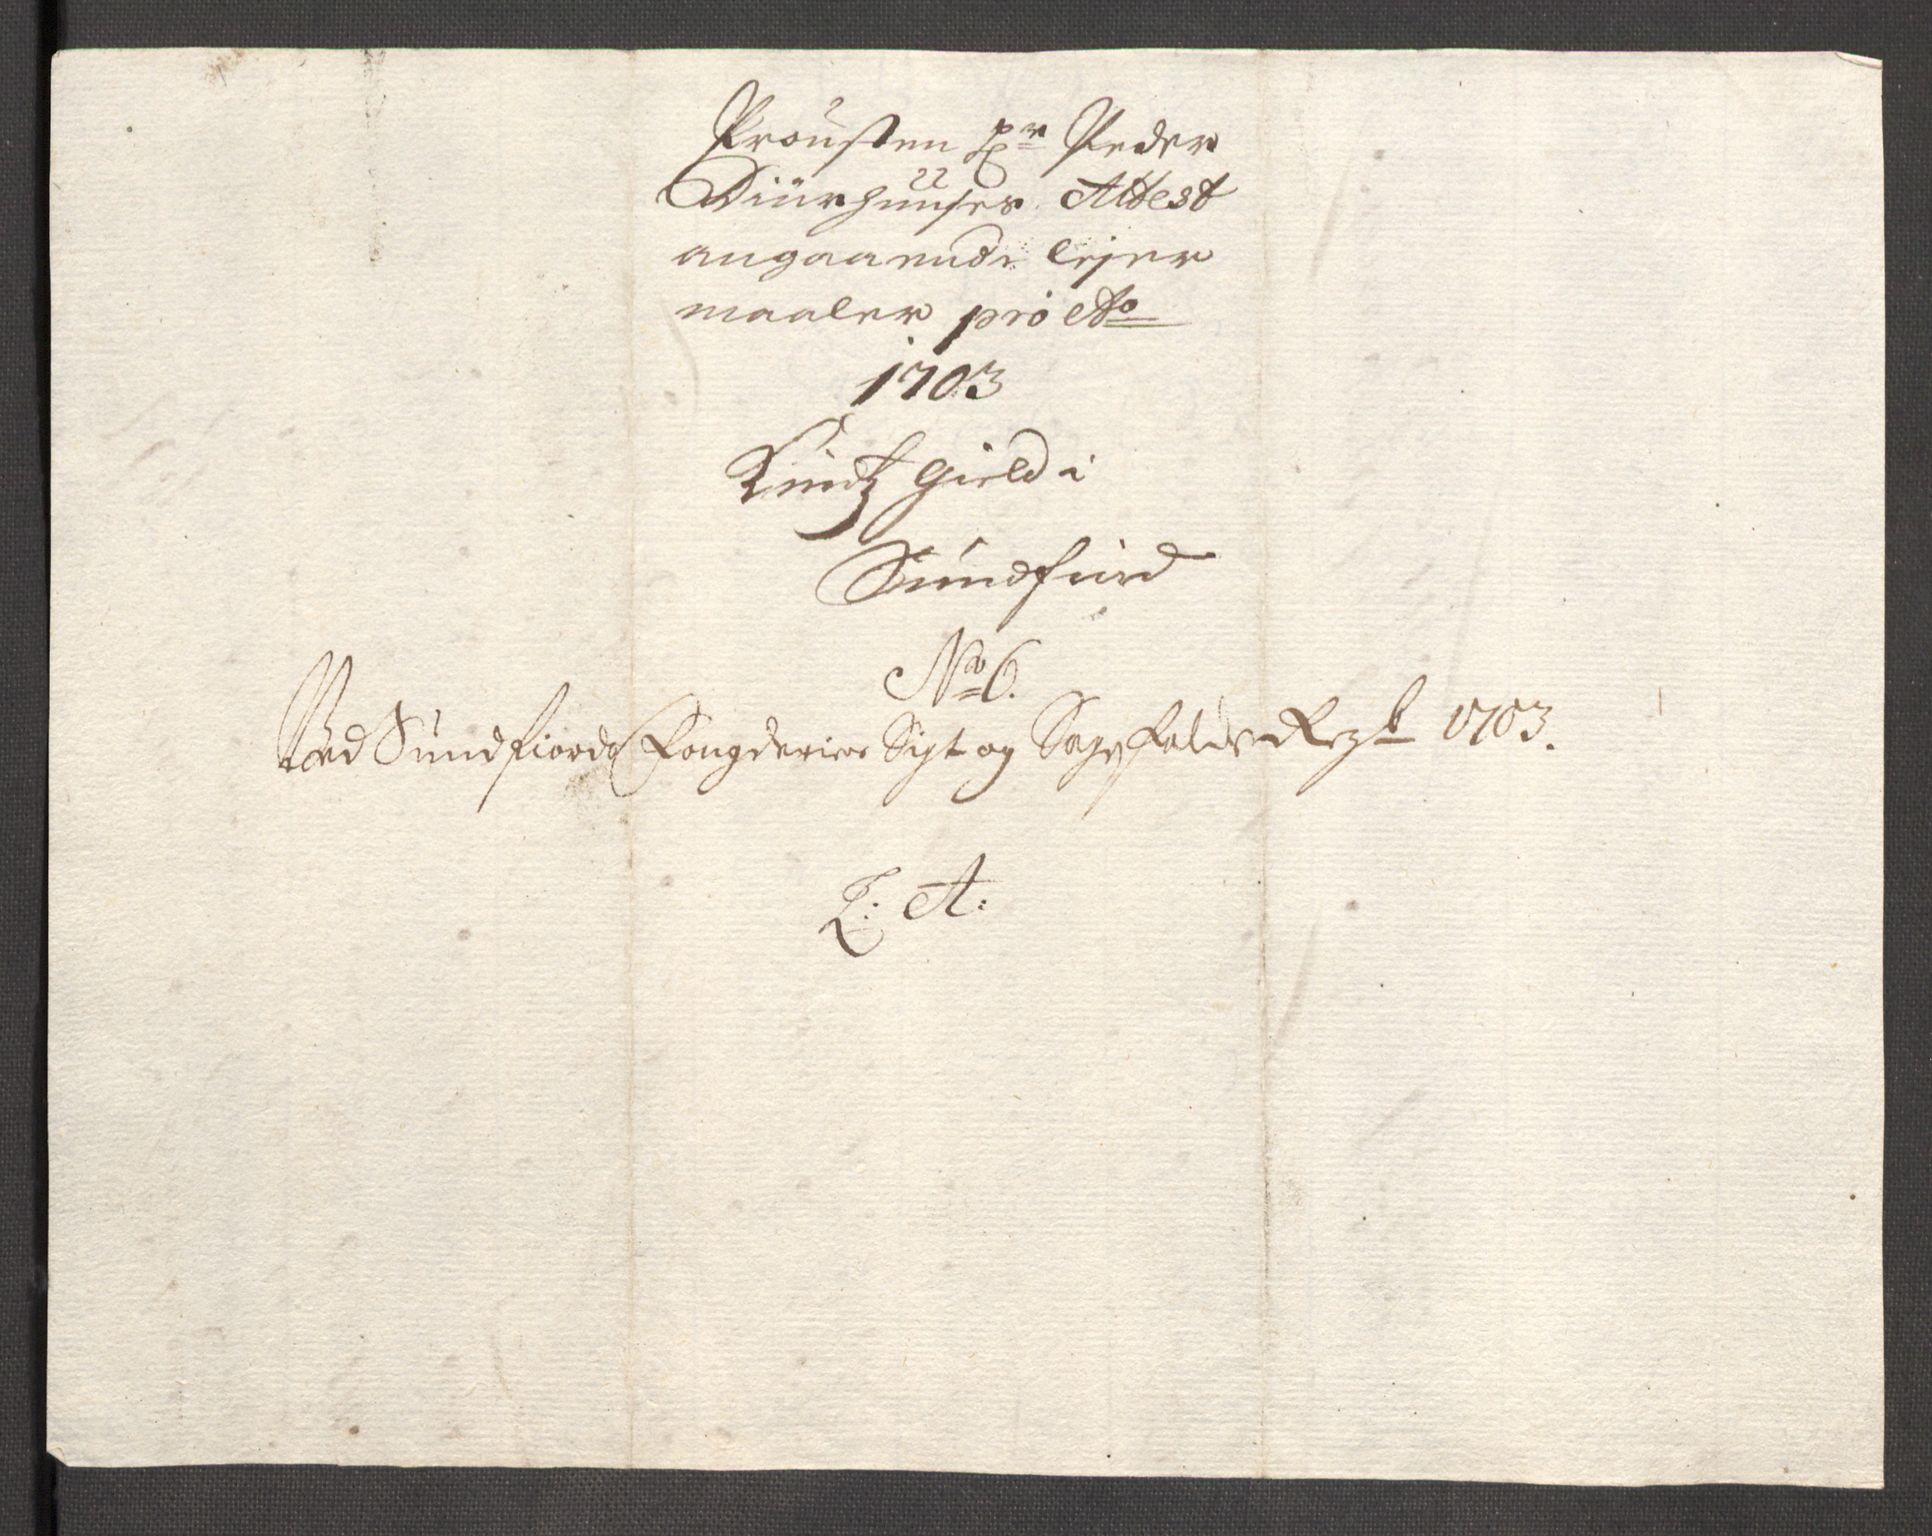 Prousten Hr Peder
Diurhuuses Attest
angaaende lejer
maaler pro Ao
1703
Kindtz gield i
Sundfiord
No 6.
Ved Sundfiords Fougderies Sigt og Sagefalds Regsk 1703.
L: A: